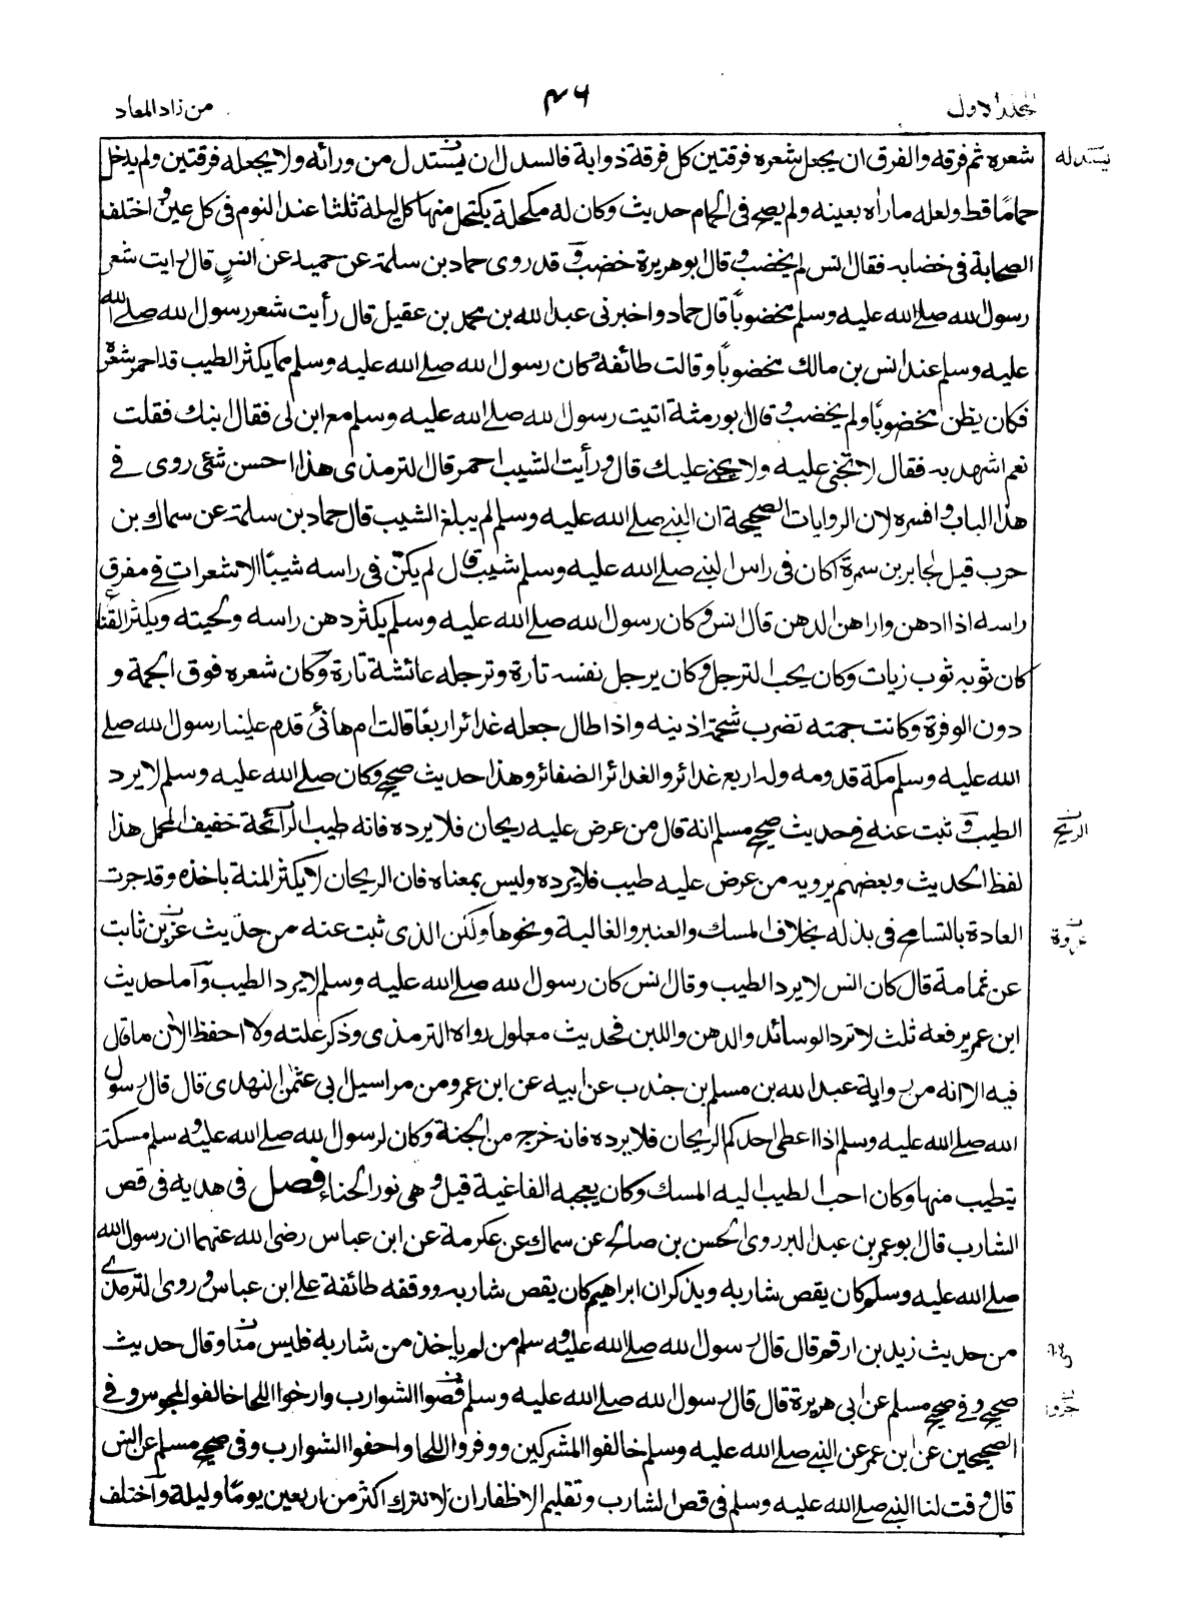 المجلد الاول
٤٦
من زاد المعاد
شعره ثم فرقه والفرق ان يجعل شعره فرقتين كل فرقة ذوابة فالسدل ان يستدل من ورائه ولا يجعله فرقتين ولم يدخل
يسدله
حمامًا قط ولعله ماراٰه بعينه ولم يصح فى الحمام حديث وكان له مكحلة يكتحل منها كل ليلة ثلثا عند النوم فى كل عين و اختلف
الصحابة فى خضابه فقال انس لم يخضب و قال ابوهريرة خضب و قد روى حماد بن سلمة عن حميد عن انس قال رايت شعر
رسول الله صلے الله عليه وسلم مخضوبًا قال حماد و اخبرنى عبد الله بن محمد بن عقيل قال رأيت شعر رسول الله صلے الله
عليه وسلم عند انس بن مالك مخضوبًا وقالت طائفة كان رسول الله صلے الله عليه وسلم مما يكثر الطيب قد احمر شعره
فكان يظن مخضوبًا ولم يخضب و قال ابو رمثة اتيت رسول الله صلے الله عليه وسلم مع ابن لى فقال ابنك فقلت
نعم اشهد به فقال لا تجنى عليه ولا يجنے عليك قال و رأيت الشيب احمر قال الترمذى هذا احسن شئ روى فے
هذا الباب و افسره لان الروايات الصحيحة ان النبے صلے الله عليه وسلم لم يبلغ الشيب قال حماد بن سلمة عن سماك بن
حرب قيل لجابر بن سمرة اكان فى راس النبے صلے الله عليه وسلم شيب قال لم يكن فى راسه شيبًا الا شعرات فے مفرق
راسه اذا ادهن واراهن الدهن قال انس و كان رسول الله صلے الله عليه وسلم يكثر دهن راسه ولحيته ويكثر القناع
كان ثوبه ثوب زيات وكان يحب الترجل و كان يرجل نفسه تارة وترجله عائشة تارة وكان شعره فوق الجمة و
دون الوفرة وكانت جمته تضرب شحمة اذينه واذا طال جعله غدائر اربعًا قالت ام هانئ قدم علينا رسول الله صلے
الله عليه وسلم مكة قدومه وله اربع غدائر والغدائر الضفائر وهذا حديث صحيح وكان صلے الله عليه وسلم لا يرد
الطيب و ثبت عنه فے حديث صحيح مسلم انه قال من عرض عليه ريحان فلا يرده فانه طيب الرائحة خفيف المحمل هذا
الريح
لفظ الحديث وبعضهم يرويه من عرض عليه طيب فلا يرده وليس بمعناه فان الريحان لا يكثر المنة باخذه وقد جرت
العادة بالتسامح فى بذله بخلاف المسك والعنبر والغالية ونحوها ولكن الذى ثبت عنه من حديث عزرة بن ثابت
عروة
عن ثمامة قال كان انس لا يرد الطيب وقال انس كان رسول الله صلے الله عليه وسلم لا يرد الطيب وآما حديث
ابن عمر يرفعه ثلث لا ترد الوسائد والدهن واللبن فحديث معلول رواه الترمذى وذكر علته ولا احفظ الاٰن ما قال
فيه الا انه من رواية عبد الله بن مسلم بن جندب عن ابيه عن ابن عمر ومن مراسيل ابى عثمٰن النهدى قال قال رسول
الله صلے الله عليه وسلم اذا اعطى احدكم الريحان فلا يرده فانه خرج من الجنة وكان لرسول الله صلے الله عليه وسلم مسكة
يتطيب منها وكان احب الطيب اليه المسك وكان يعجبه الفاغية قيل و هى نور الحناء فصل فى هديه فى قص
الشارب قال ابوعمر بن عبد البر روى الحسن بن صالح عن سماك عن عكرمة عن ابن عباس رضى الله عنهما ان رسول الله
صلے الله عليه وسلم كان يقص شاربه ويذكر ان ابراهيم كان يقص شاربه ووقفه طائفة علے ابن عباس و روى الترمذى
من حديث زيد بن ارقم قال قال رسول الله صلے الله عليه وسلم من لم ياخذ من شاربه فليس منا وقال حديث
صحيح و فى صحيح مسلم عن ابى هريرة قال قال رسول الله صلے الله عليه وسلم قصوا الشوارب وارخوا اللحا خالفوا المجوس وفے
جزوا
الصحيحين عن ابن عمر عن النبے صلے الله عليه وسلم خالفوا المشركين ووفروا اللحا واحفوا الشوارب وفى صحيح مسلم عن انس
قال وقت لنا النبے صلے الله عليه وسلم فى قص الشارب وتقليم الاظفار ان لا نترك اكثر من اربعين يومًا وليلة وآختلف